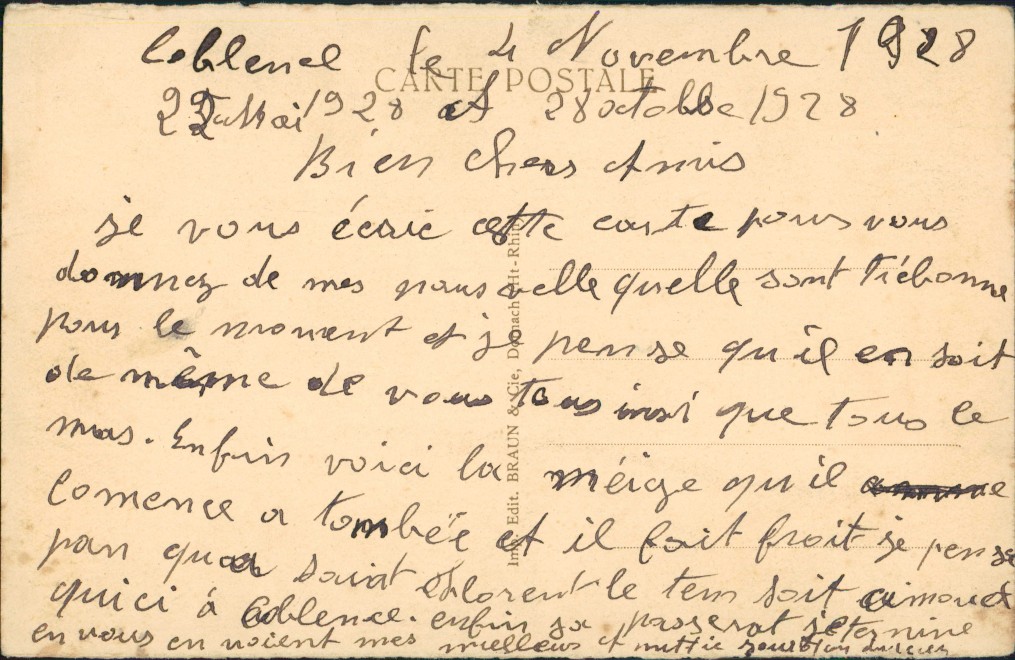 Coblence le 4 Novembre 1928
CARTE POSTALE
22 Mai 1928 et 28 octobbe 1928
Bien chers Amis
je vous écric cette carte pour vous
domnez de mes nouvelle quelle sont trébonne
pour le moment et je pense qu il en soit
de même de vous tous insi que tous le
mas. Enfin voici la néige qu il
comence a tombée et il fait froit je pense
pan qua saint Florent le tem soit
quici à Coblence. enfin sa passerat je termine
en vous en voient mes meilleurs
Imp. Edit. BRAUN & Cie, Dornach (Ht-Rhin)